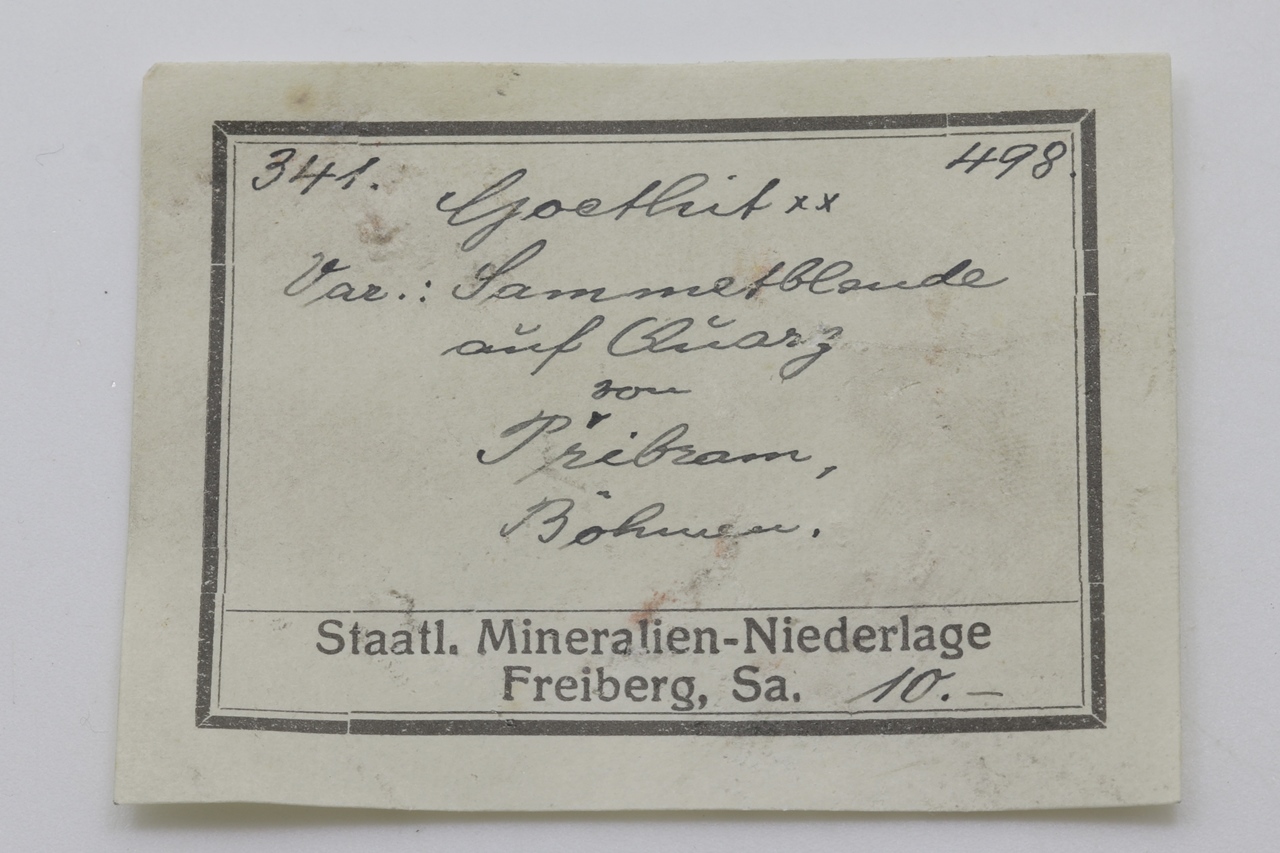 341. 498.
Goethit xx
Var.: Sammetblende
auf Quarz
von
Přibram,
Böhmen.
Staatl. Mineralien-Niederlage
Freiberg, Sa. 10.–